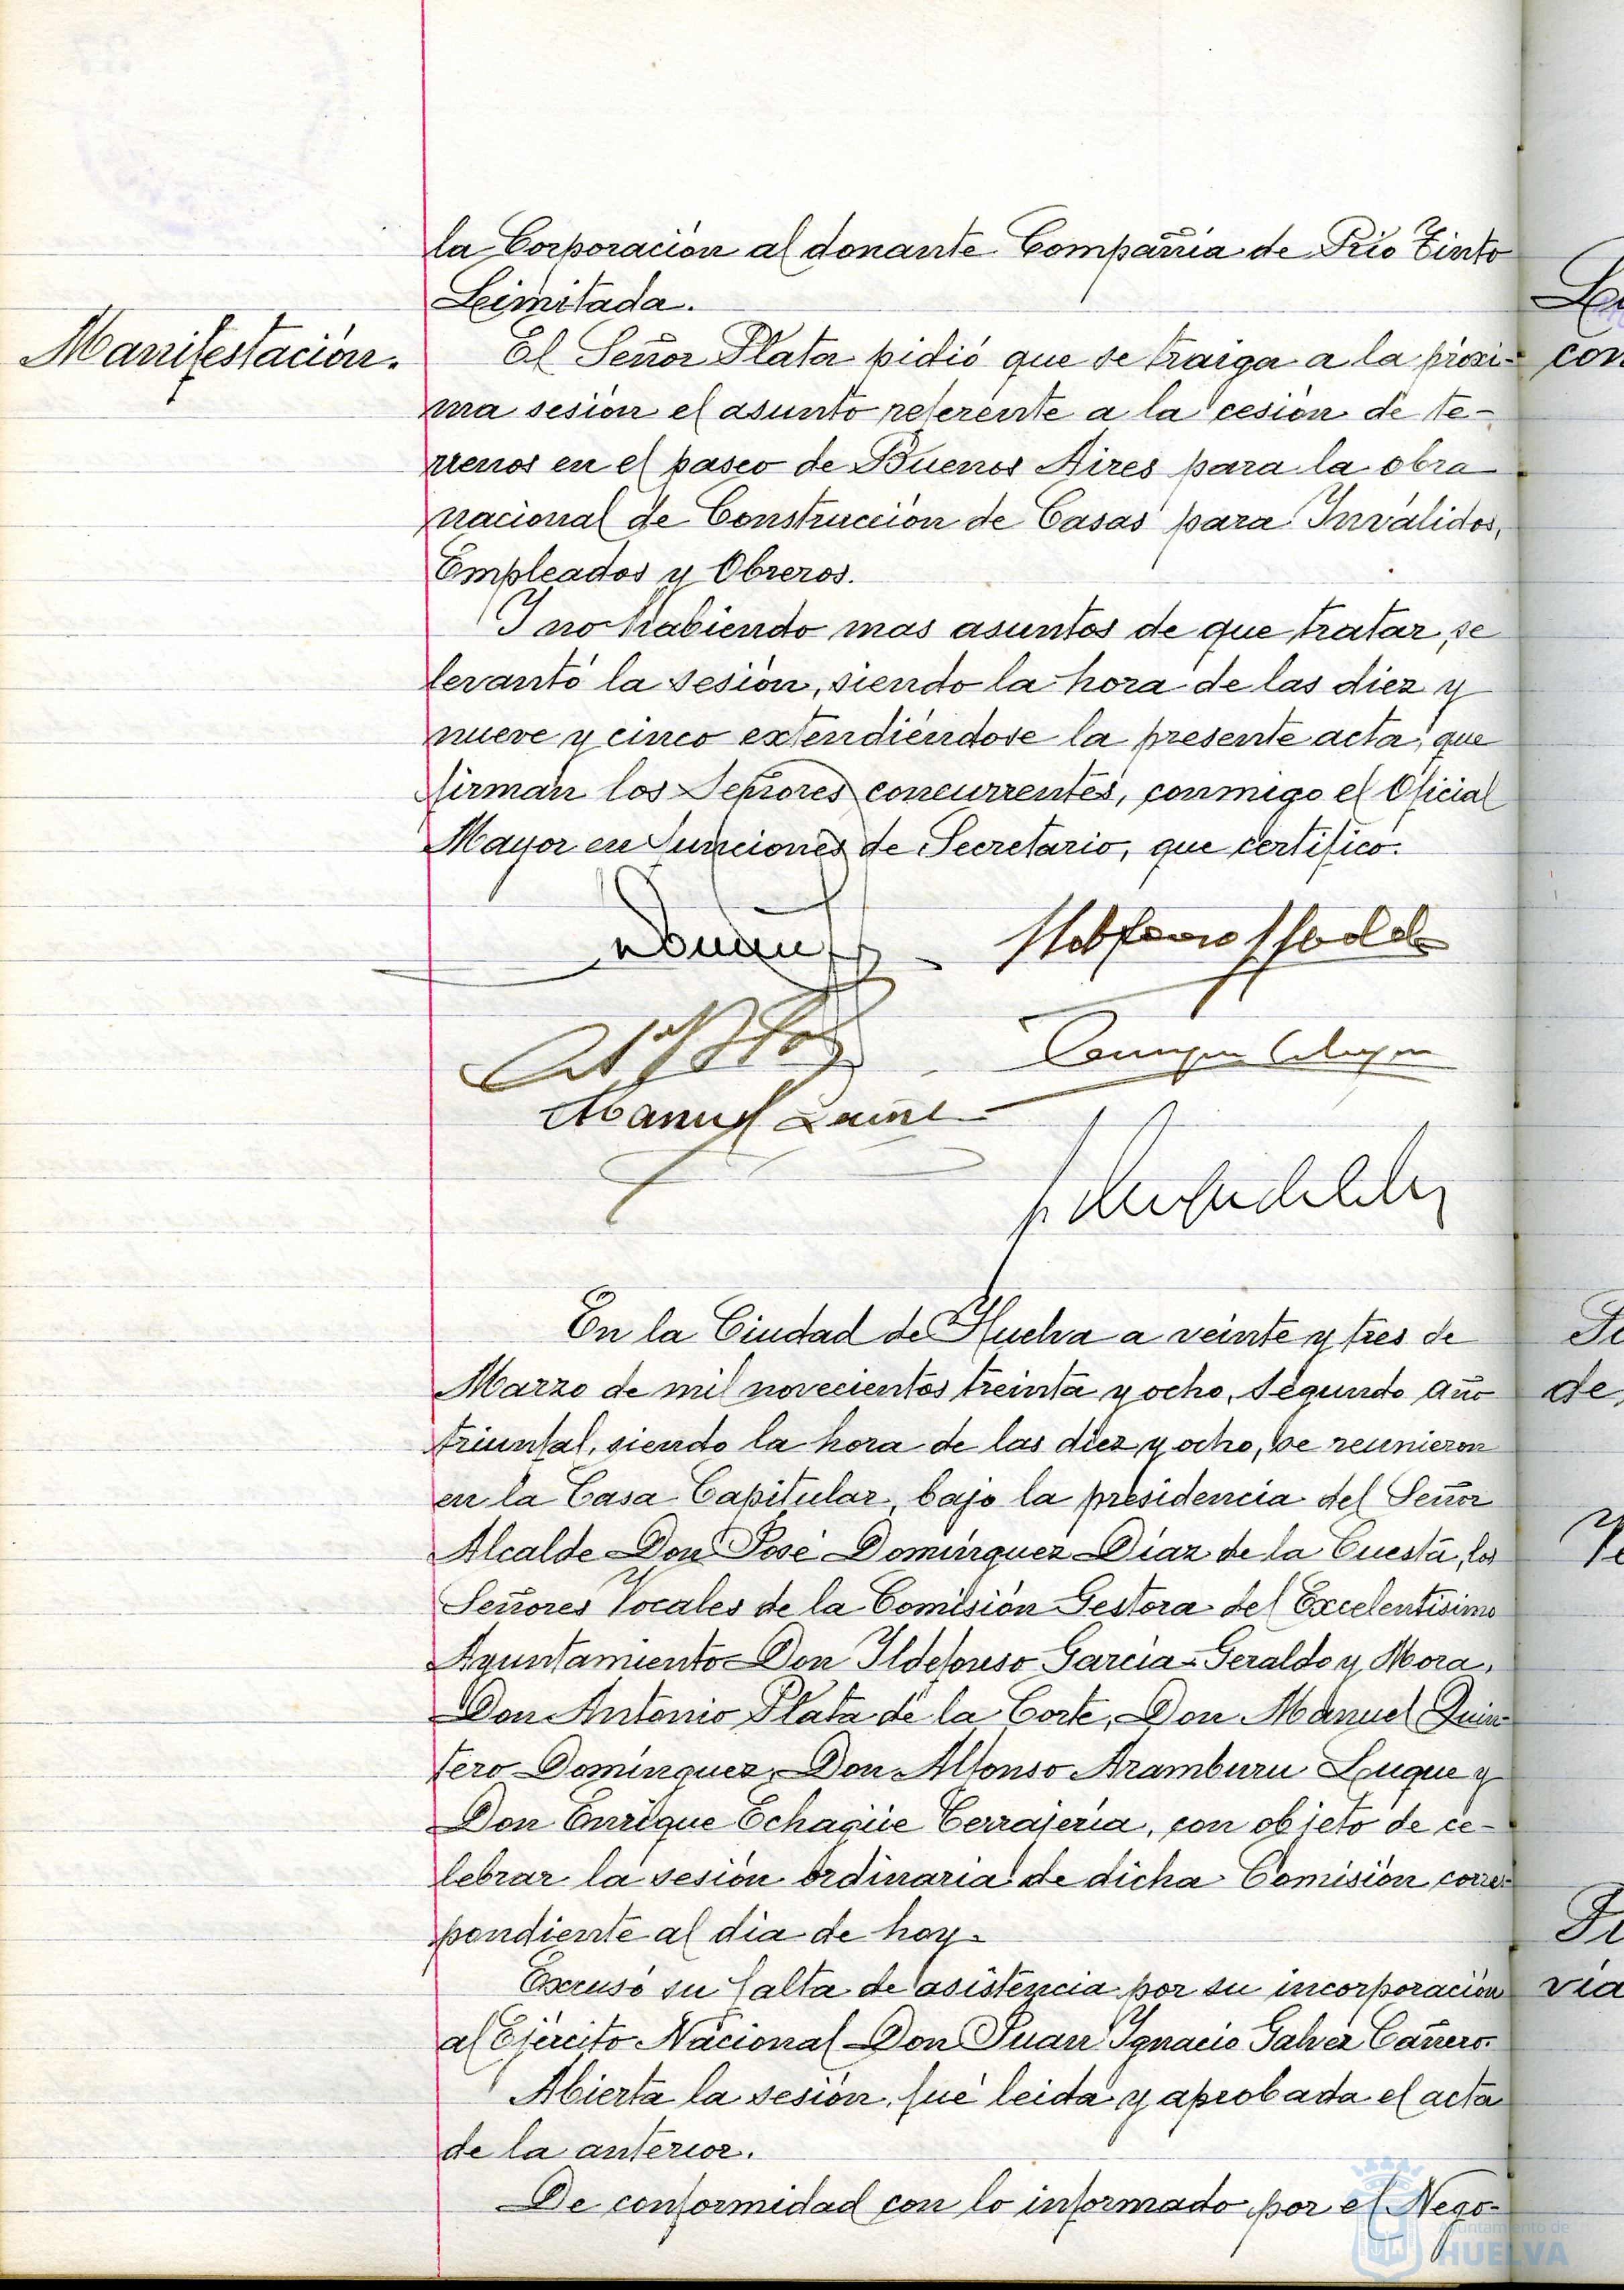 la Corporación al donante Compañia de Rio Tinto
Limitada.
Manifestación.
El Señor Plata pidió que se traiga a la proxi-
ma sesión el asunto referente a la cesión de te-
rrenos en el paseo de Buenos Aires para la obra
nacional de Construcción de Casas para Inválidos,
Empleados y Obreros.
Y no habiendo mas asuntos de que tratar, se
levantó la sesión, siendo la hora de las diez y
nueve y cinco extendiéndose la presente acta, que
firman los Señores concurrentes, conmigo el Oficial
Mayor en funciones de Secretario, que certifico.
Manuel
En la Ciudad de Huelva a veinte y tres de
Marzo de mil novecientos treinta y ocho, segundo año
triunfal, siendo la hora de las diez y ocho, se reunieron
en la Casa Capitular, bajo la presidencia del Señor
Alcalde Don José Domínguez Díaz de la Cuesta, los
Señores Vocales de la Comisión Gestora del Excelentísimo
Ayuntamiento Don Ildefonso García-Geraldo y Mora,
Don Antonio Plata de la Corte, Don Manuel Quin-
tero Domínguez, Don Alfonso Aramburu Luque y
Don Enrique Echagüe Cerrajería, con objeto de ce-
lebrar la sesión ordinaria de dicha Comisión corres-
pondiente al dia de hoy.
Excusó su falta de asistencia por su incorporación
al Ejército Nacional Don Juan Ignacio Galvez Cañero.
Abierta la sesión, fué leida y aprobada el acta
de la anterior.
De conformidad con lo informado por el Nego-
Ayuntamiento de
HUELVA
con
de
via